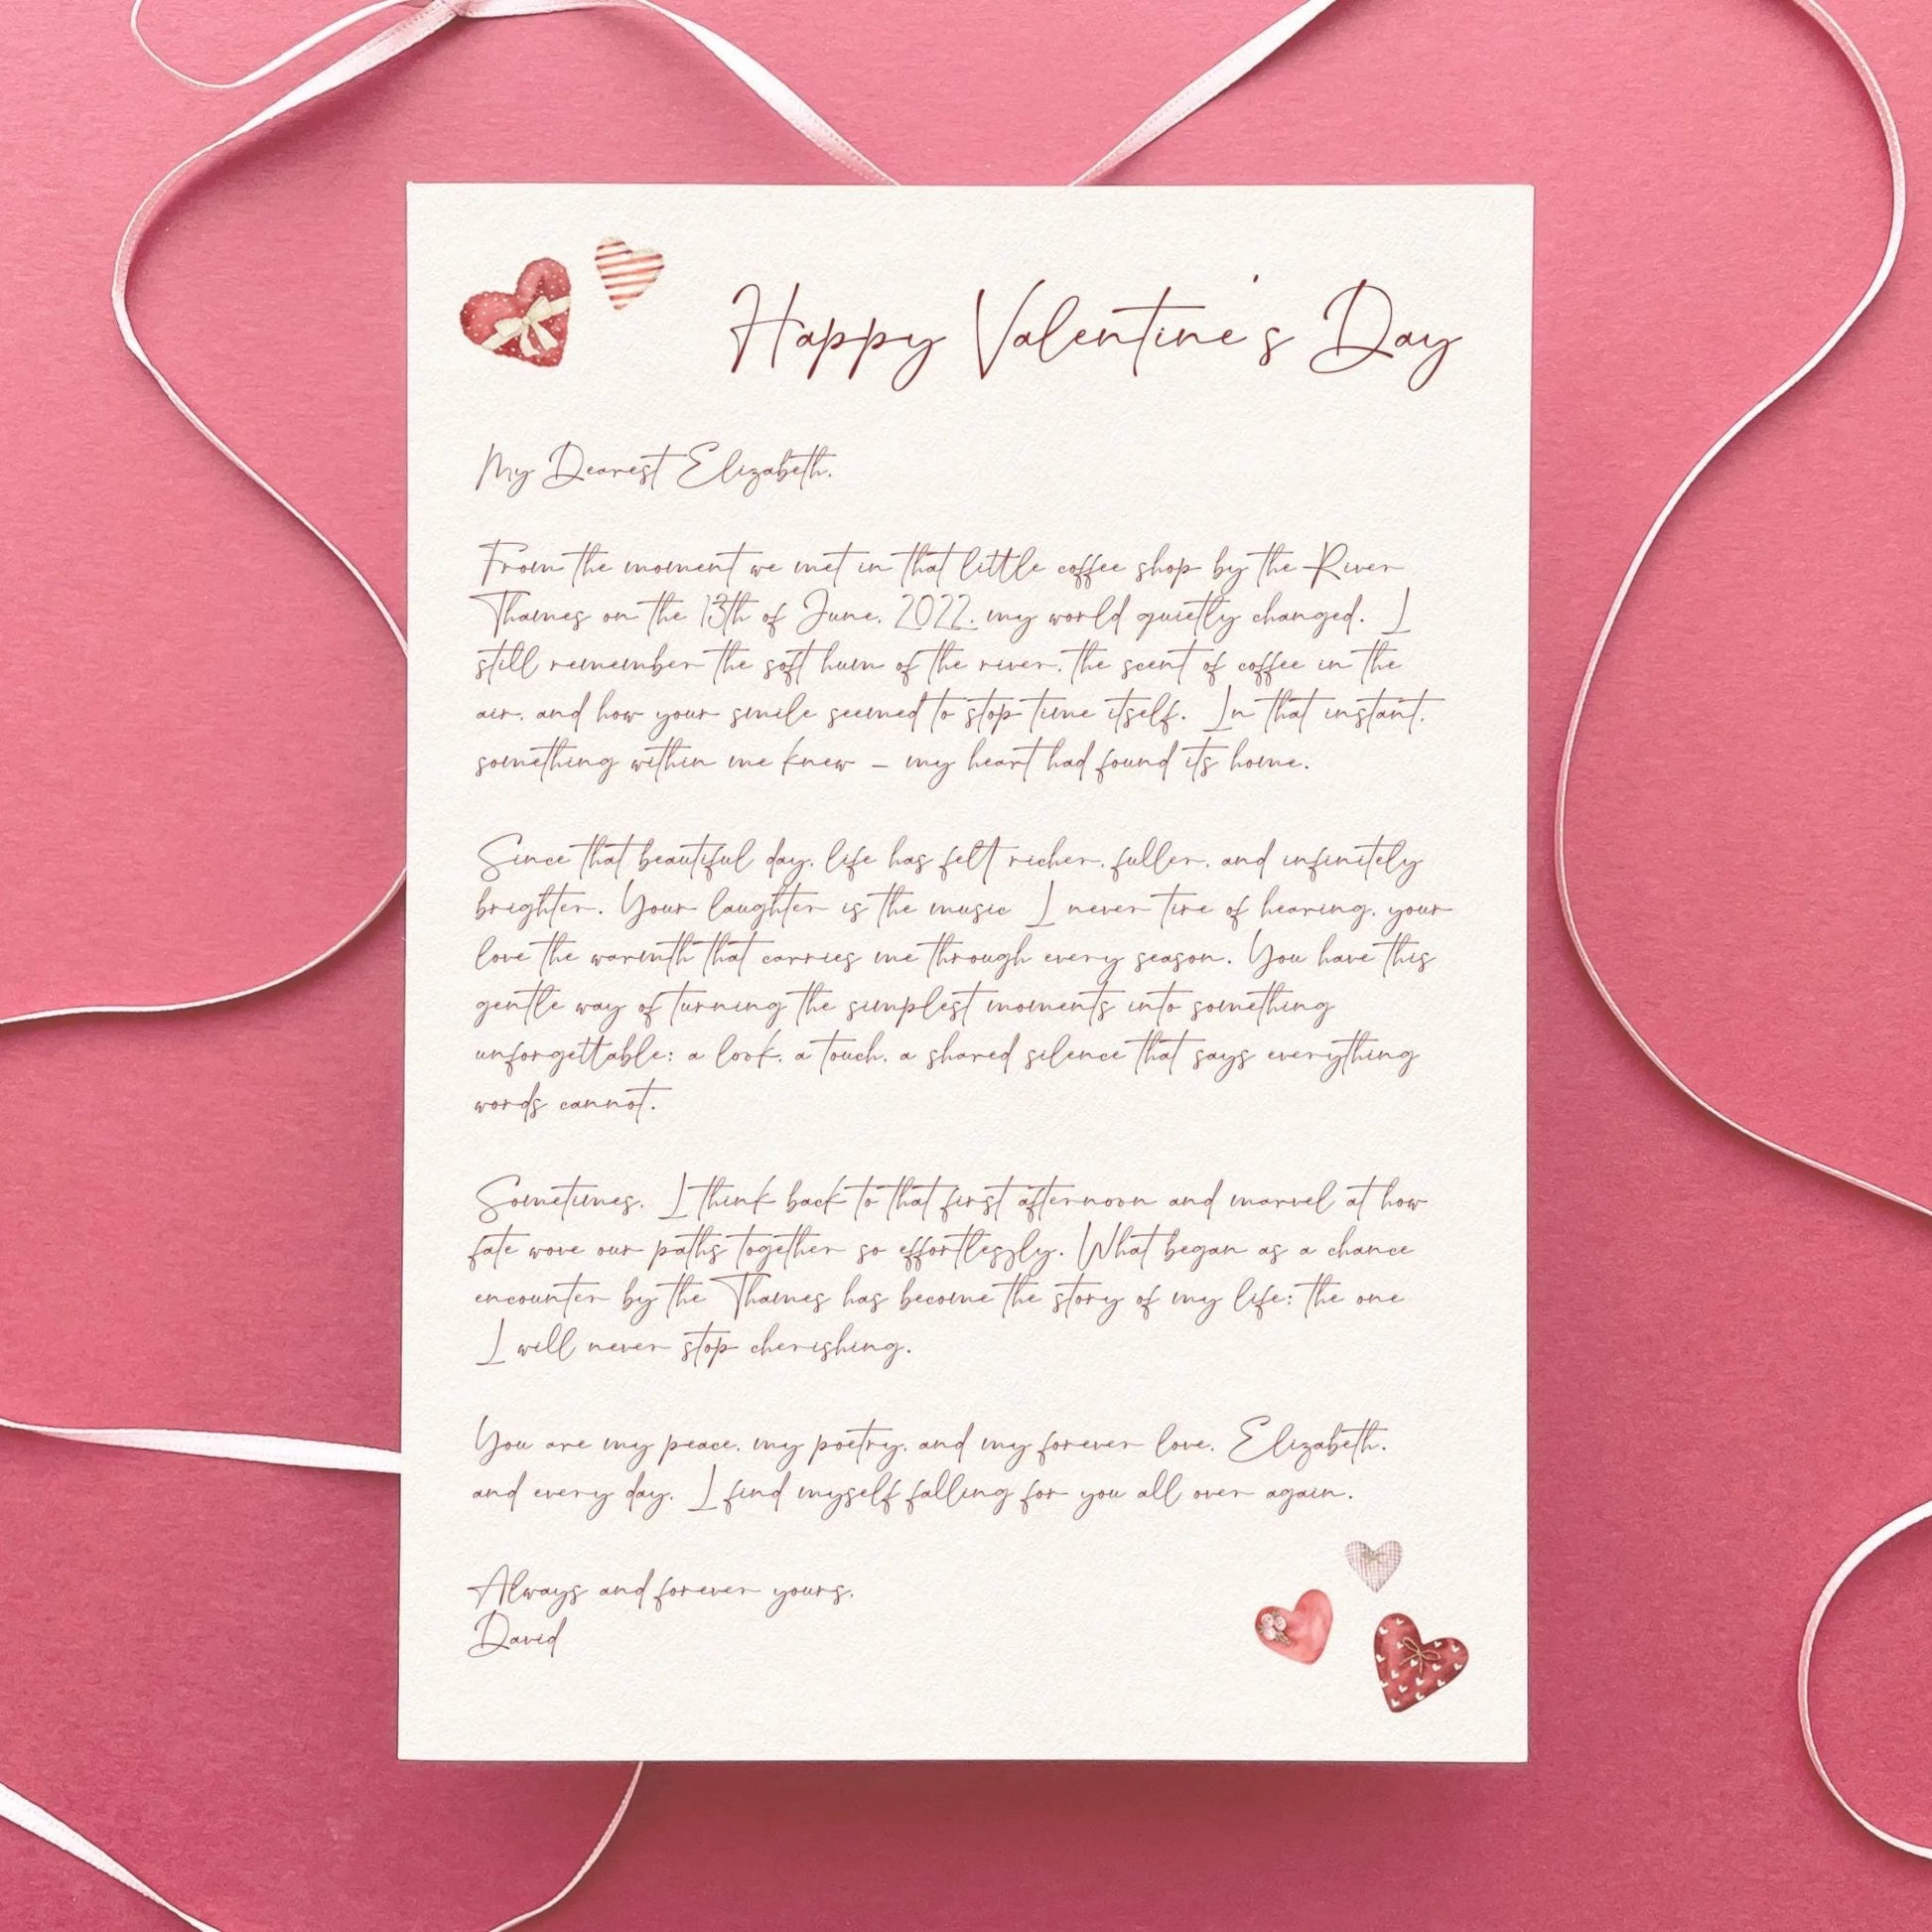 Happy Valentine's Day
My Dearest Elizabeth,
From the moment we met in that little coffee shop by the River
Thames on the 13th of June, 2022, my world quietly changed. I
still remember the soft hum of the river, the scent of coffee in the
air, and how your smile seemed to stop time itself. In that instant,
something within me knew – my heart had found its home.
Since that beautiful day, life has felt richer, fuller, and infinitely
brighter. Your laughter is the music I never tire of hearing, your
love the warmth that carries me through every season. You have this
gentle way of turning the simplest moments into something
unforgettable: a look, a touch, a shared silence that says everything
words cannot.
Sometimes, I think back to that first afternoon and marvel at how
fate wove our paths together so effortlessly. What began as a chance
encounter by the Thames has become the story of my life: the one
I will never stop cherishing.
You are my peace, my poetry, and my forever love, Elizabeth,
and every day, I find myself falling for you all over again.
Always and forever yours,
David